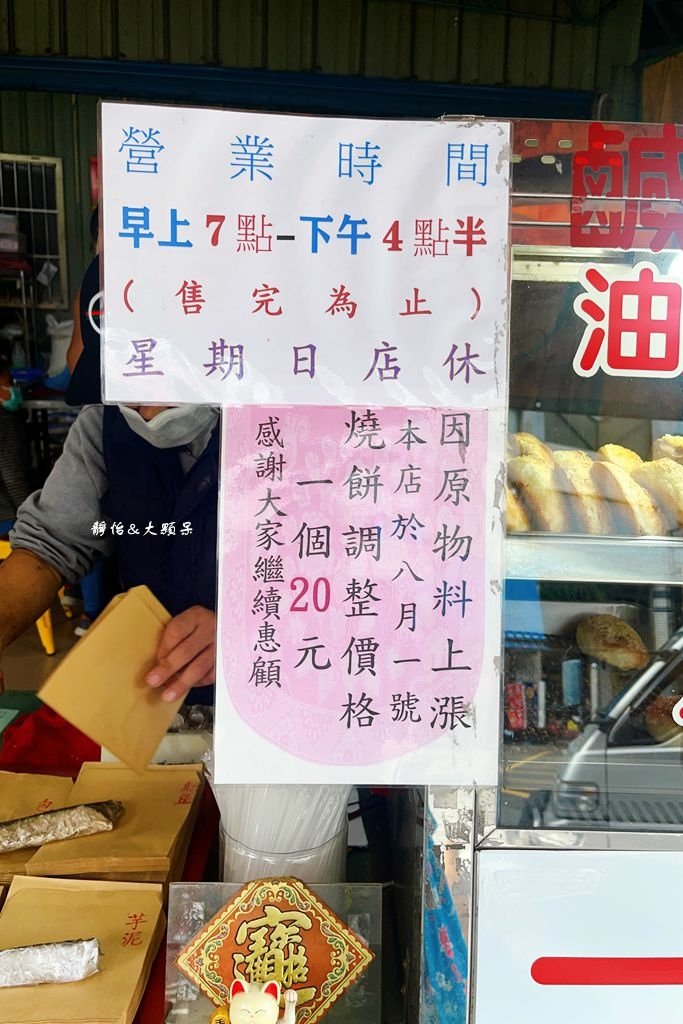 營業時間
早上7點-下午4點半
(售完為止)
星期日店休
因原物料上漲
本店於八月一號
燒餅調整價格
一個20元
感謝大家繼續惠顧
鹹
油
靜怡&大顆呆
芋泥